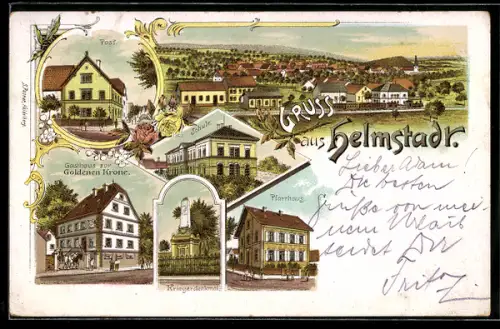 Post
Gruss
aus Helmstadt.
Schule
Gasthaus zur
Goldenen Krone.
Pfarrhaus
Kriegerdenkmal
Lieber Adam!
Die besten
Grüße von mei-
nem Urlaub
sendet Dir
Fritz